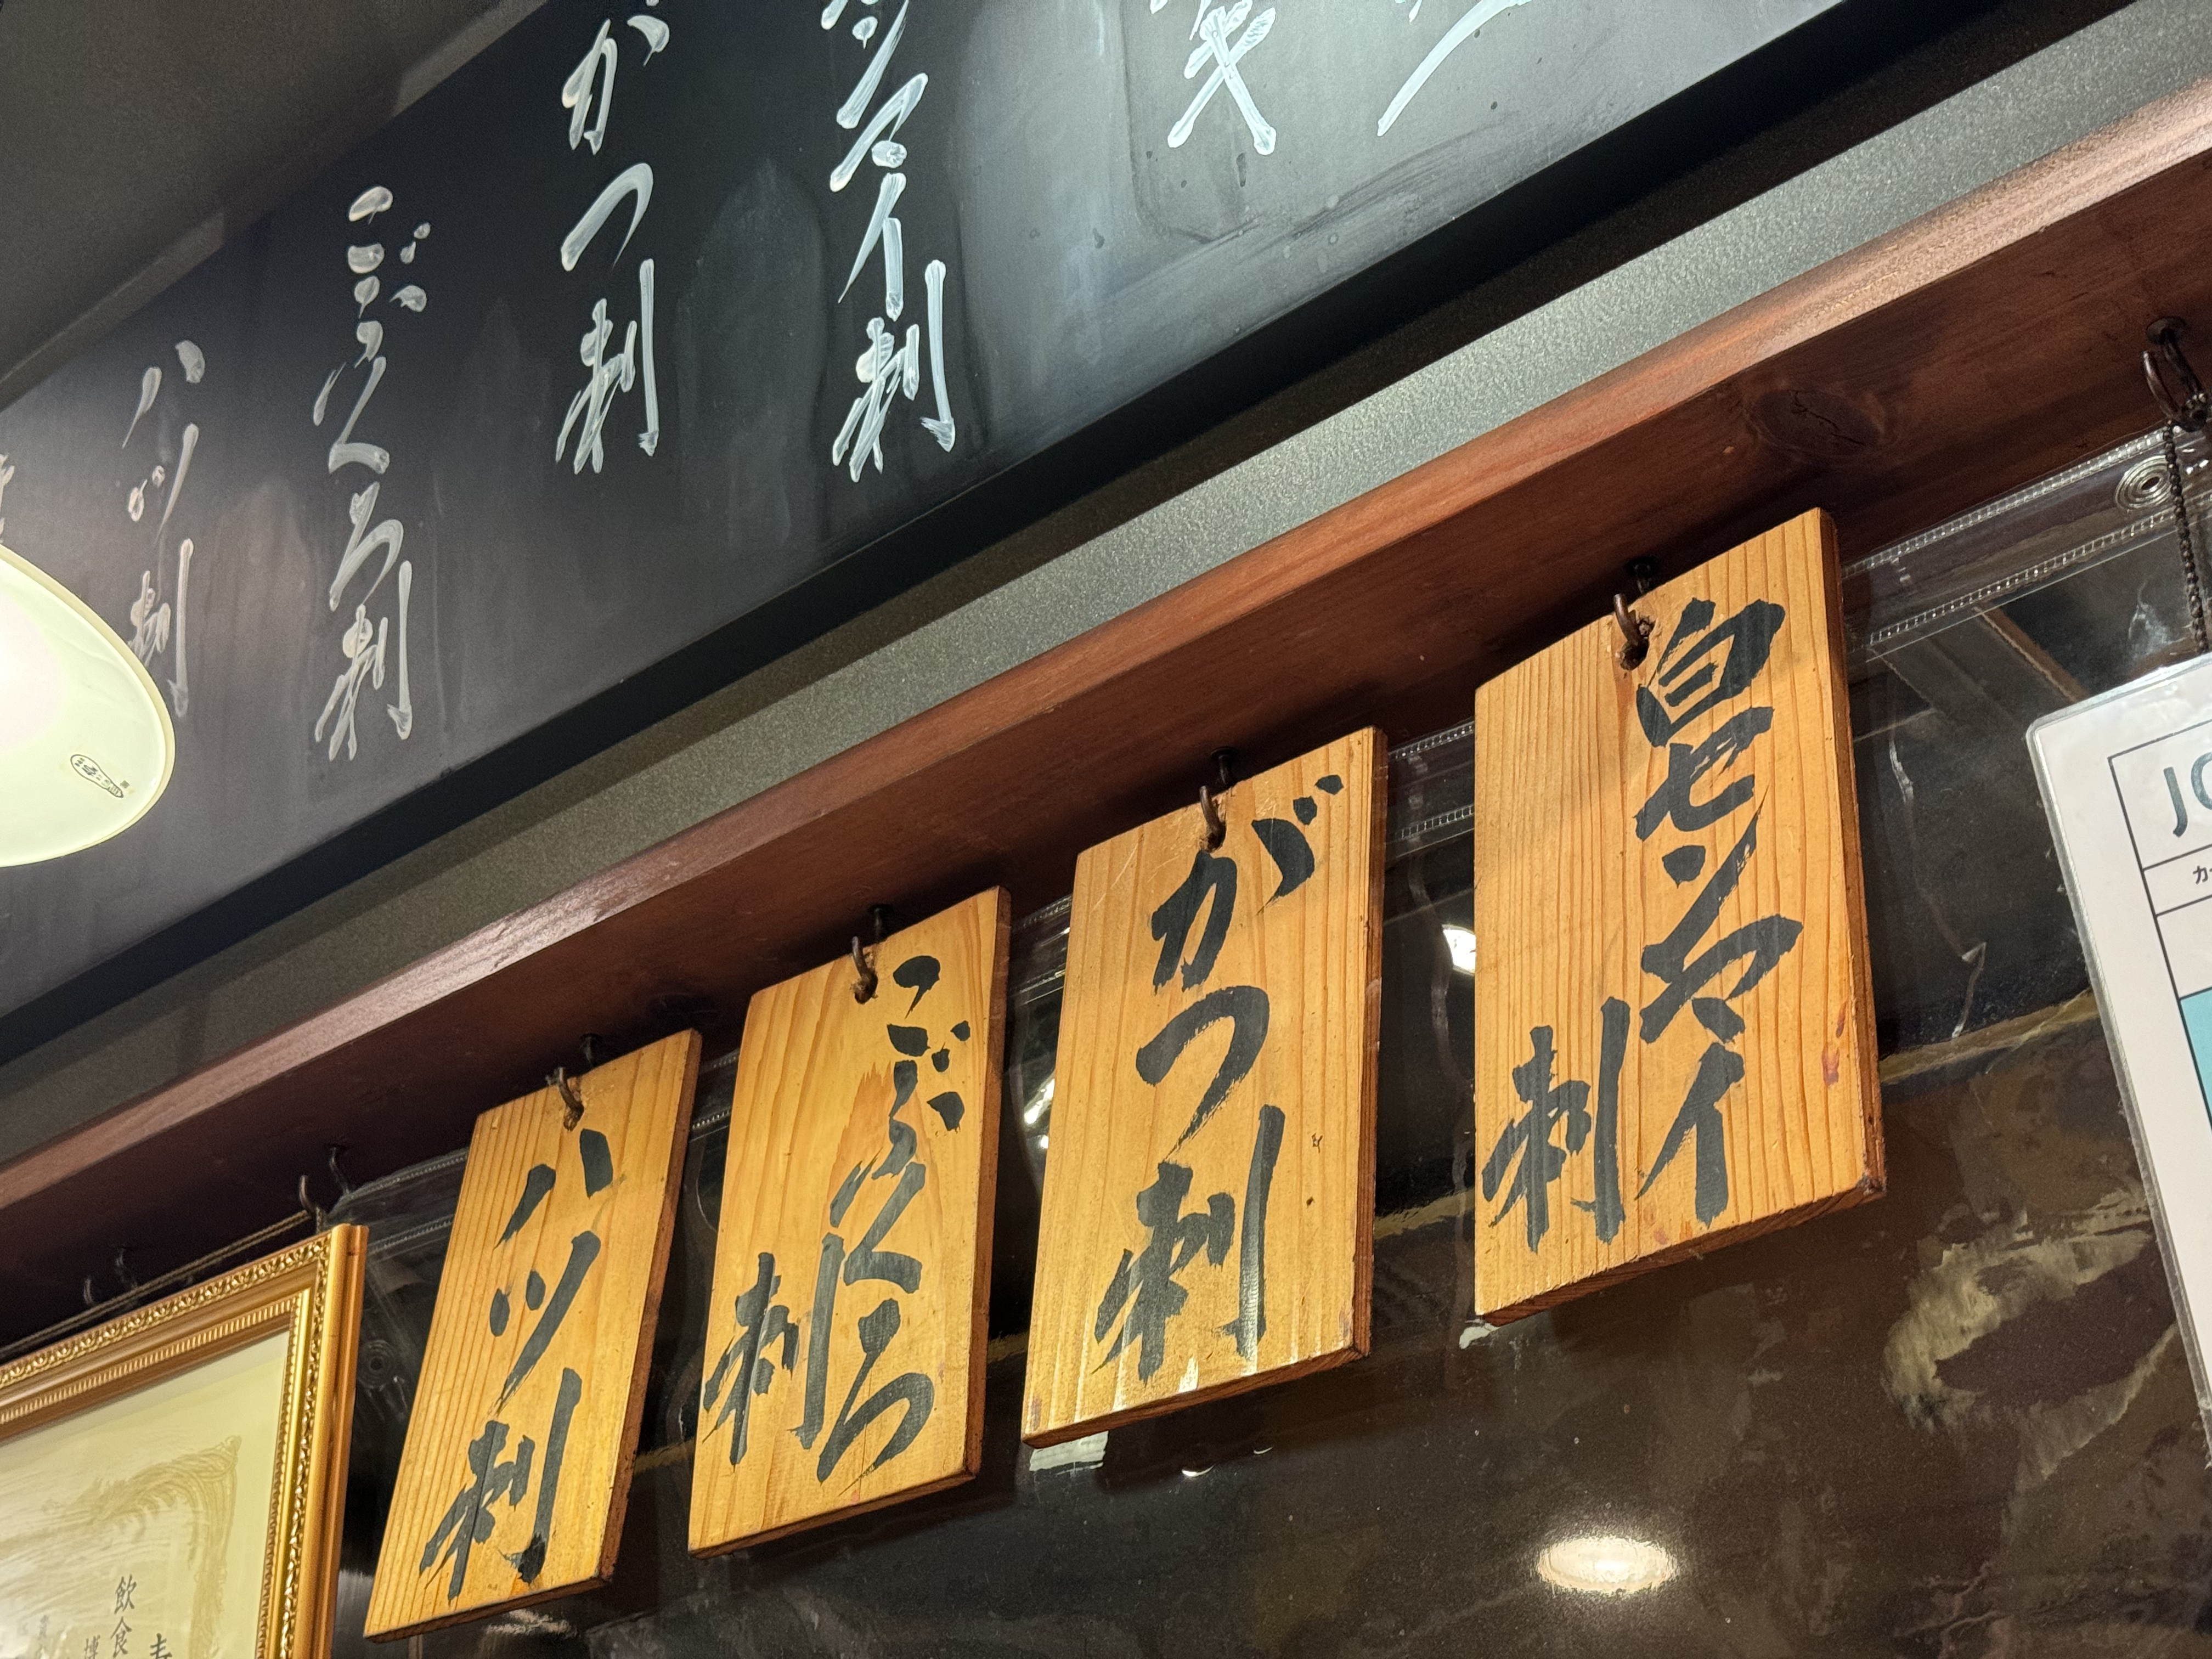 がつ刺
センマイ刺
こぶくろ刺
ハツ刺
白センマイ
刺
がつ刺
こぶくろ
刺
ハツ刺
飲食